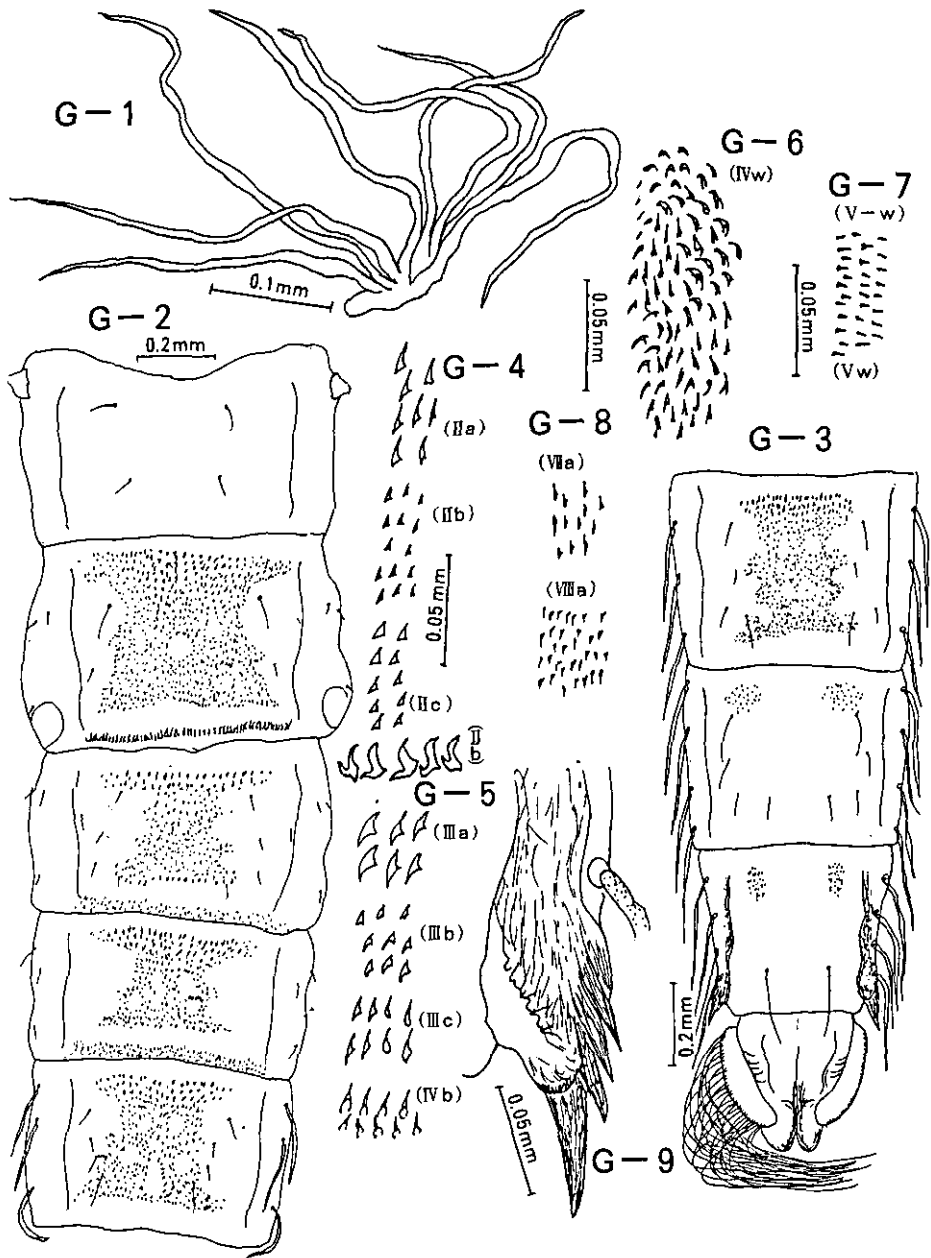 G-1
0.1mm
G-2
0.2mm
G-4
(Ⅱa)
(Ⅱb)
0.05mm
(Ⅱc)
(Ⅱb)
G-5
(Ⅲa)
(Ⅲb)
(Ⅲc)
(Ⅳb)
G-6
(Ⅳw)
0.05mm
G-7
(V-w)
0.05mm
(Vw)
G-8
(Ⅶa)
(Ⅷa)
G-3
0.2mm
G-9
0.05mm